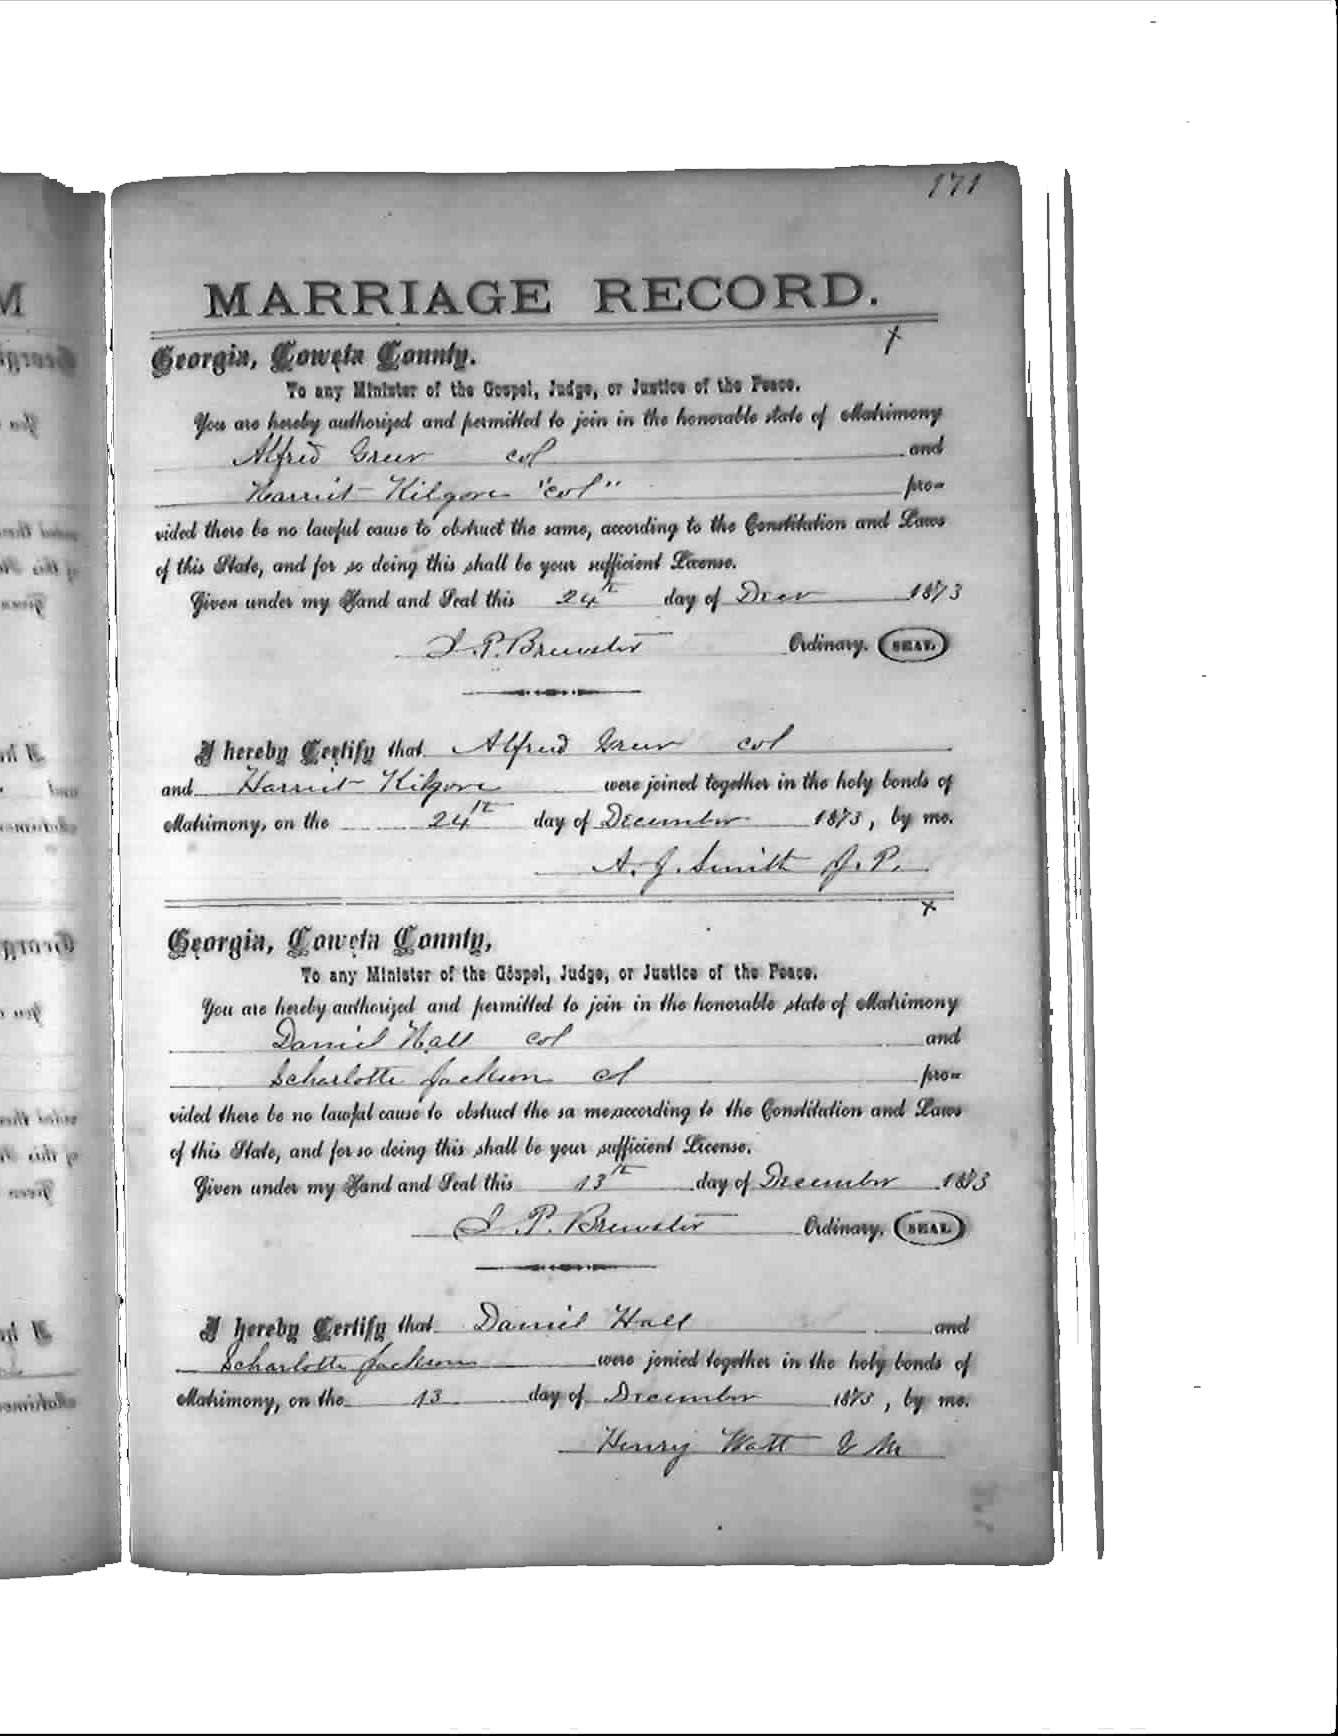 171
MARRIAGE RECORD.
Georgia, Coweta County.
To any Minister of the Gospel, Judge, or Justice of the Peace.
You are hereby authorized and permitted to join in the honorable state of Matrimony
Alfred Greer col and
Harriet Kilgore "col" pro-
vided there be no lawful cause to obstruct the same, according to the Constitution and Laws
of this State, and for so doing this shall be your sufficient License.
Given under my Hand and Seal this 24th day of Decr 1873
J. P. Brewster Ordinary. SEAL
I hereby Certify that Alfred Greer col
and Harriet Kilgore were joined together in the holy bonds of
Matrimony, on the 24th day of December 1873, by me.
A. J. Smith J. P.
Georgia, Coweta County,
To any Minister of the Gospel, Judge, or Justice of the Peace.
You are hereby authorized and permitted to join in the honorable state of Matrimony
Daniel Hall col and
Scharlotte Jackson col pro-
vided there be no lawful cause to obstruct the sa me, according to the Constitution and Laws
of this State, and for so doing this shall be your sufficient License.
Given under my Hand and Seal this 13th day of December 1873
J. P. Brewster Ordinary. SEAL
I hereby Certify that Daniel Hall and
Scharlotte Jackson were jonied together in the holy bonds of
Matrimony, on the 13 day of December 1873, by me.
Henry Watt